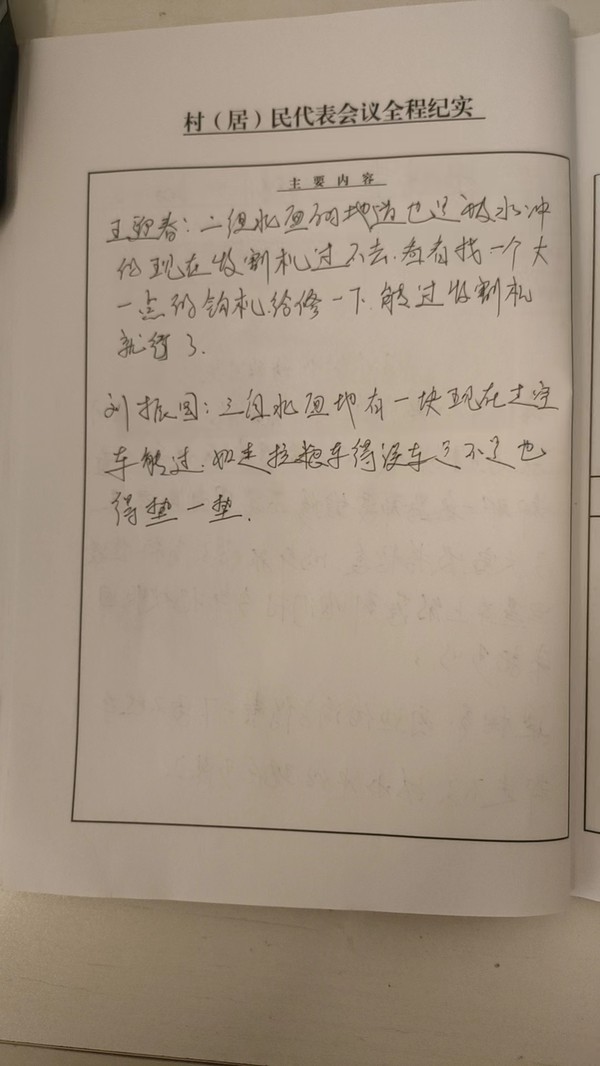 村（居）民代表会议全程纪实
主要内容
王迎春：二组水面的地道也是被水冲
的现在收割机过不去.看看找一个大
一点的钩机.给修一下.能过收割机
就行了.
刘振国：三组水面地有一块现在走空
车能过.如走拉粮车得误车是不是也
得垫一垫.